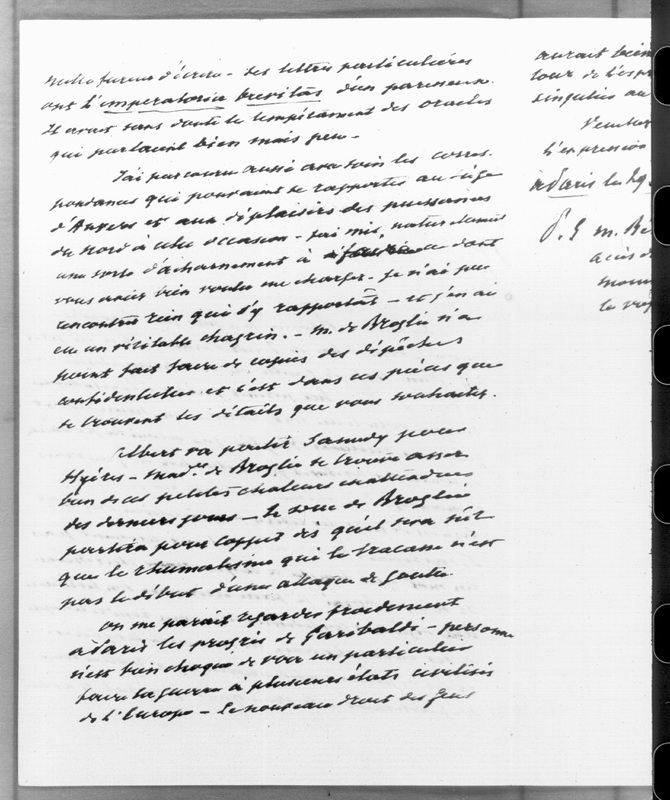 notre fureur d'écrire - ses lettres particulières
ont l'imperatoria brevitas d'un parvenu.
Il avait sans doute le tempérament des oracles
qui parlaient bien mais peu -
J'ai parcouru aussi avec soin les corres-
pondances qui pouvaient se rapporter au siège
d'Anvers et aux déplaisirs des puissances
du Nord à cette occasion - j'ai mis, naturellement
une sorte d'acharnement à ce dont
vous aviez bien voulu me charger - je n'ai pu
rencontrer rien qui s'y rapportât - et j'en ai
eu un véritable chagrin. - M. de Broglie n'a
point fait faire de copies des dépêches
confidentielles et c'est dans ces pièces que
se trouvent les détails que vous souhaitez.
Albert va partir Samedy pour
Hyères - Mad.e de Broglie se trouve assez
bien de ces petites chaleurs inattendues
des derniers jours - le duc de Broglie
partira pour Coppet dès qu'il sera sûr
que le rhumatisme qui le tracasse n'est
pas le début d'une attaque de goutte
On me paraît regarder froidement
à Paris les progrès de Garibaldi - personne
n'est bien choqué de voir un particulier
faire la guerre à plusieurs états civilisés
de l'Europe - le nouveau droit des gens
aurait bien
tour de l'esp
singulier au
Veuillez
l'expression
à Paris le
P.S M. Bé
accès d
mom
le